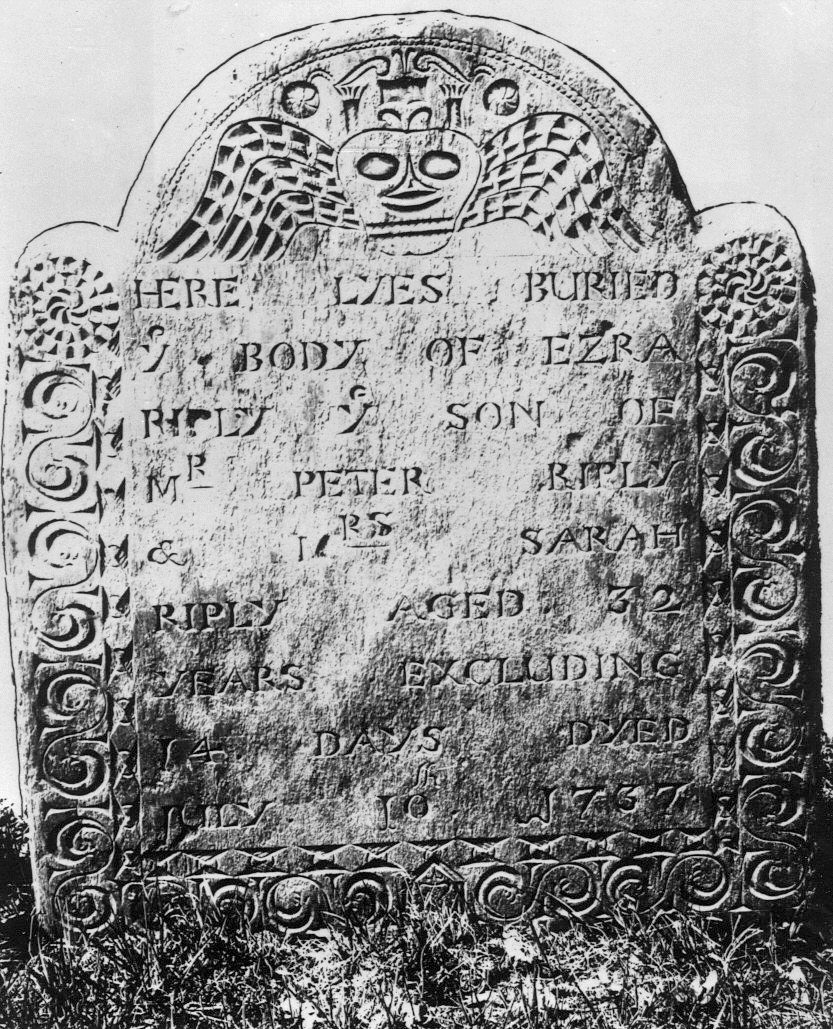 HERE LYES BURIED
Yᵉ BODY OF EZRA
RIPLY Yᵉ SON OF
Mᴿ PETER RIPLY
& Mᴿˢ SARAH
RIPLY AGED 32
YEARS EXCLUDING
14 DAYS DYED
JULY 10ᵗʰ 1737